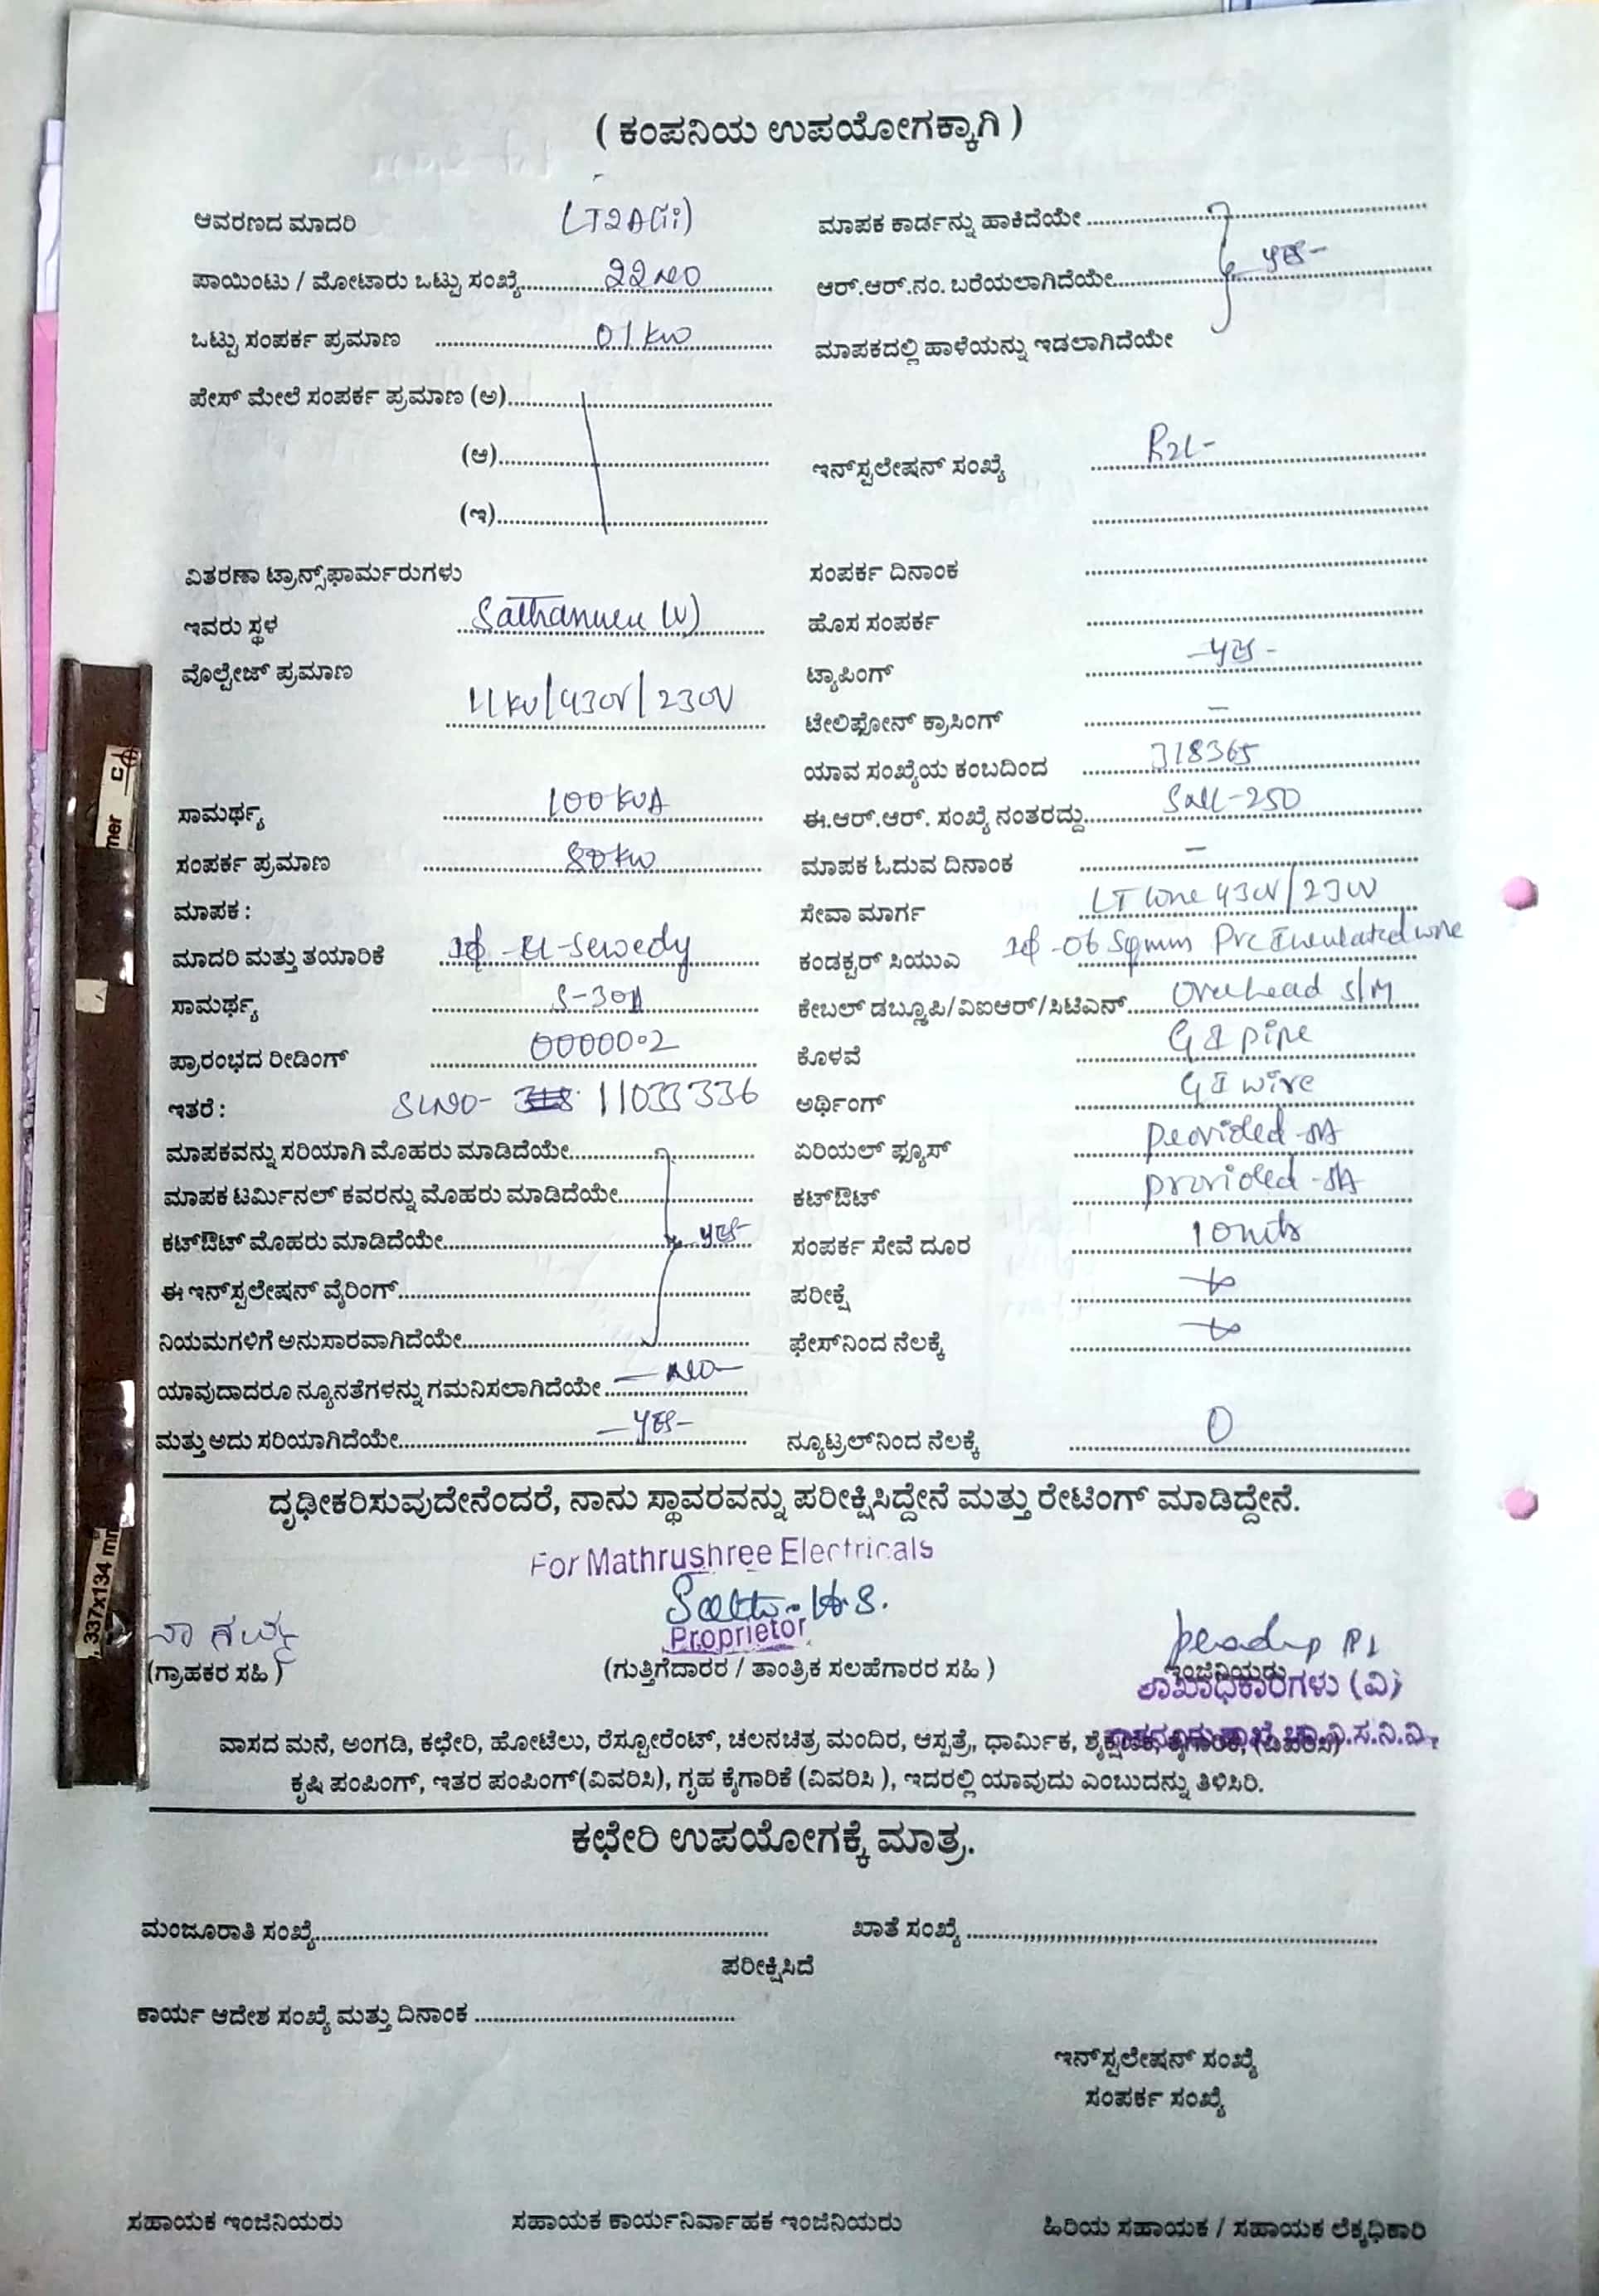 ( ಕಂಪನಿಯ ಉಪಯೋಗಕ್ಕಾಗಿ )
ಆವರಣದ ಮಾದರಿ LT2A(ii)
ಮಾಪಕ ಕಾರ್ಡನ್ನು ಹಾಕಿದೆಯೇ
ಪಾಯಿಂಟು / ಮೋಟಾರು ಒಟ್ಟು ಸಂಖ್ಯೆ 22 NO
ಆರ್.ಆರ್.ನಂ. ಬರೆಯಲಾಗಿದೆಯೇ yes
ಒಟ್ಟು ಸಂಪರ್ಕ ಪ್ರಮಾಣ 01 kw
ಮಾಪಕದಲ್ಲಿ ಹಾಳೆಯನ್ನು ಇಡಲಾಗಿದೆಯೇ
ಪೇಸ್ ಮೇಲೆ ಸಂಪರ್ಕ ಪ್ರಮಾಣ (ಅ)
(ಆ)
ಇನ್‌ಸ್ಟಲೇಷನ್ ಸಂಖ್ಯೆ
(ಇ)
ವಿತರಣಾ ಟ್ರಾನ್ಸ್‌ಫಾರ್ಮರುಗಳು
ಸಂಪರ್ಕ ದಿನಾಂಕ
ಇವರು ಸ್ಥಳ Sathanuru (V)
ಹೊಸ ಸಂಪರ್ಕ
ವೊಲ್ಟೇಜ್ ಪ್ರಮಾಣ 11kv/430V/230V
ಟ್ಯಾಪಿಂಗ್ -yes-
ಟೇಲಿಫೋನ್ ಕ್ರಾಸಿಂಗ್ -
ಯಾವ ಸಂಖ್ಯೆಯ ಕಂಬದಿಂದ 318365
ಸಾಮರ್ಥ್ಯ 100 KVA
ಈ.ಆರ್.ಆರ್. ಸಂಖ್ಯೆ ನಂತರದ್ದು
ಸಂಪರ್ಕ ಪ್ರಮಾಣ 80 kw
ಮಾಪಕ ಓದುವ ದಿನಾಂಕ -
ಮಾಪಕ :
ಸೇವಾ ಮಾರ್ಗ LT line 430V/230V
ಮಾದರಿ ಮತ್ತು ತಯಾರಿಕೆ 1ϕ -El-Sewedy
ಕಂಡಕ್ಟರ್ ಸಿಯುಎ 1ϕ -06 Sqmm Pvc Insulated wire
ಸಾಮರ್ಥ್ಯ 5-30A
ಕೇಬಲ್ ಡಬ್ಲೂಪಿ/ವಿಐಆರ್/ಸಿಟಿಎನ್ Overhead S/M
ಪ್ರಾರಂಭದ ರೀಡಿಂಗ್ 00000.2
ಕೊಳವೆ G I pipe
ಇತರೆ : SLNO- 11033336
ಅರ್ಥಿಂಗ್ G I wire
ಮಾಪಕವನ್ನು ಸರಿಯಾಗಿ ಮೊಹರು ಮಾಡಿದೆಯೇ
ಏರಿಯಲ್ ಫ್ಯೂಸ್ provided -5A
ಮಾಪಕ ಟರ್ಮಿನಲ್ ಕವರನ್ನು ಮೊಹರು ಮಾಡಿದೆಯೇ
ಕಟ್‌ಔಟ್ provided -5A
ಕಟ್‌ಔಟ್ ಮೊಹರು ಮಾಡಿದೆಯೇ yes
ಸಂಪರ್ಕ ಸೇವೆ ದೂರ 10 mts
ಈ ಇನ್‌ಸ್ಟಲೇಷನ್ ವೈರಿಂಗ್
ಪರೀಕ್ಷೆ
ನಿಯಮಗಳಿಗೆ ಅನುಸಾರವಾಗಿದೆಯೇ
ಫೇಸ್‌ನಿಂದ ನೆಲಕ್ಕೆ
ಯಾವುದಾದರೂ ನ್ಯೂನತೆಗಳನ್ನು ಗಮನಿಸಲಾಗಿದೆಯೇ -NO-
ಮತ್ತು ಅದು ಸರಿಯಾಗಿದೆಯೇ -yes-
ನ್ಯೂಟ್ರಲ್‌ನಿಂದ ನೆಲಕ್ಕೆ 0
ದೃಢೀಕರಿಸುವುದೇನೆಂದರೆ, ನಾನು ಸ್ಥಾವರವನ್ನು ಪರೀಕ್ಷಿಸಿದ್ದೇನೆ ಮತ್ತು ರೇಟಿಂಗ್ ಮಾಡಿದ್ದೇನೆ.
For Mathrushree Electricals
Proprietor
(ಗ್ರಾಹಕರ ಸಹಿ )
(ಗುತ್ತಿಗೆದಾರರ / ತಾಂತ್ರಿಕ ಸಲಹೆಗಾರರ ಸಹಿ )
ಇಂಜಿನಿಯರು
ಶಾಖಾಧಿಕಾರಿಗಳು (ವಿ)
ವಾಸದ ಮನೆ, ಅಂಗಡಿ, ಕಛೇರಿ, ಹೋಟೆಲು, ರೆಸ್ಟೋರೆಂಟ್, ಚಲನಚಿತ್ರ ಮಂದಿರ, ಆಸ್ಪತ್ರೆ, ಧಾರ್ಮಿಕ, ಶೈಕ್ಷಣಿಕ, ಕೈಗಾರಿಕೆ, (ವಿವರಿಸಿ)
ಕೃಷಿ ಪಂಪಿಂಗ್, ಇತರ ಪಂಪಿಂಗ್(ವಿವರಿಸಿ), ಗೃಹ ಕೈಗಾರಿಕೆ (ವಿವರಿಸಿ ), ಇದರಲ್ಲಿ ಯಾವುದು ಎಂಬುದನ್ನು ತಿಳಿಸಿರಿ.
ಕಛೇರಿ ಉಪಯೋಗಕ್ಕೆ ಮಾತ್ರ.
ಮಂಜೂರಾತಿ ಸಂಖ್ಯೆ
ಖಾತೆ ಸಂಖ್ಯೆ
ಪರೀಕ್ಷಿಸಿದೆ
ಕಾರ್ಯ ಆದೇಶ ಸಂಖ್ಯೆ ಮತ್ತು ದಿನಾಂಕ
ಇನ್‌ಸ್ಟಲೇಷನ್ ಸಂಖ್ಯೆ
ಸಂಪರ್ಕ ಸಂಖ್ಯೆ
ಸಹಾಯಕ ಇಂಜಿನಿಯರು
ಸಹಾಯಕ ಕಾರ್ಯನಿರ್ವಾಹಕ ಇಂಜಿನಿಯರು
ಹಿರಿಯ ಸಹಾಯಕ / ಸಹಾಯಕ ಲೆಕ್ಕಧಿಕಾರಿ